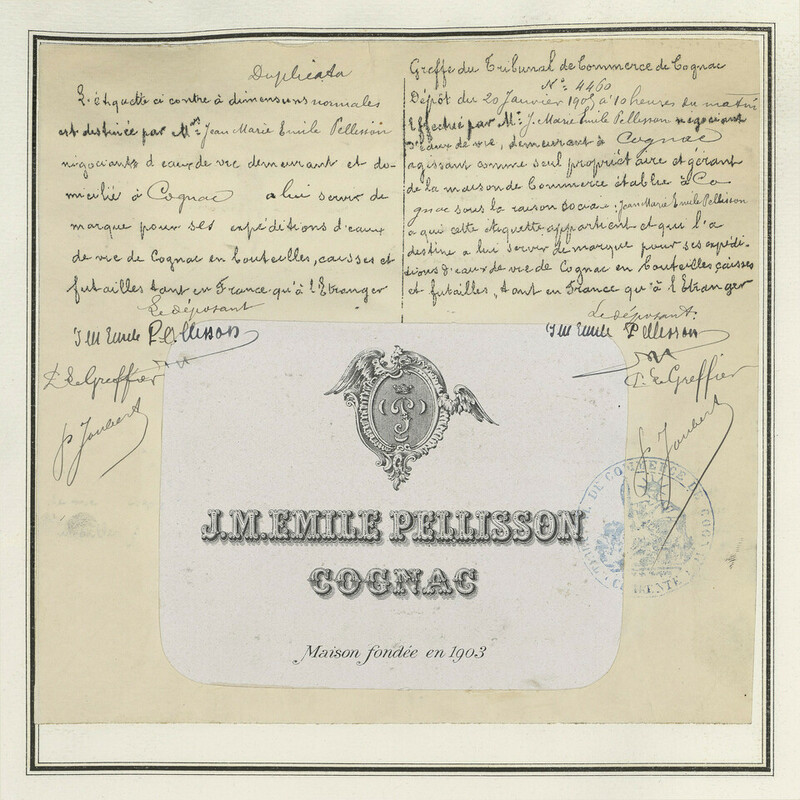 Duplicata
L'étiquette ci contre à dimensions normales
est destinée par Mr Jean Marie Emile Pellisson
négociants d'eaux de vie demeurant et do-
micilié à Cognac a lui servir de
marque pour ses expéditions d'eaux
de vie de Cognac en bouteilles, caisses et
futailles tant en France qu'à l'Etranger
Le déposant
J M Emile Pellisson
Le Greffier
Joubert
Greffe du Tribunal de Commerce de Cognac
No 4460
Dépôt du 20 Janvier à 10 heures du matin
Effectué par Mr J. Marie Emile Pellisson négociant
d'eaux de vie, demeurant à Cognac
agissant comme seul propriétaire et gérant
de la maison de Commerce établie à Co
gnac sous la raison sociale: Jean Marie Emile Pellisson
a qui cette étiquette appartient et qui l'a
destine a lui servir de marque pour ses expédi-
tions d'eaux de vie de Cognac en bouteilles, caisses
et futailles, tant en France qu'à l'Etranger
Le déposant:
J M Emile Pellisson
Le Greffier
Joubert
J.M. EMILE PELLISSON
COGNAC
Maison fondée en 1903
DE COMMERCE DE COGNAC
CHARENTE